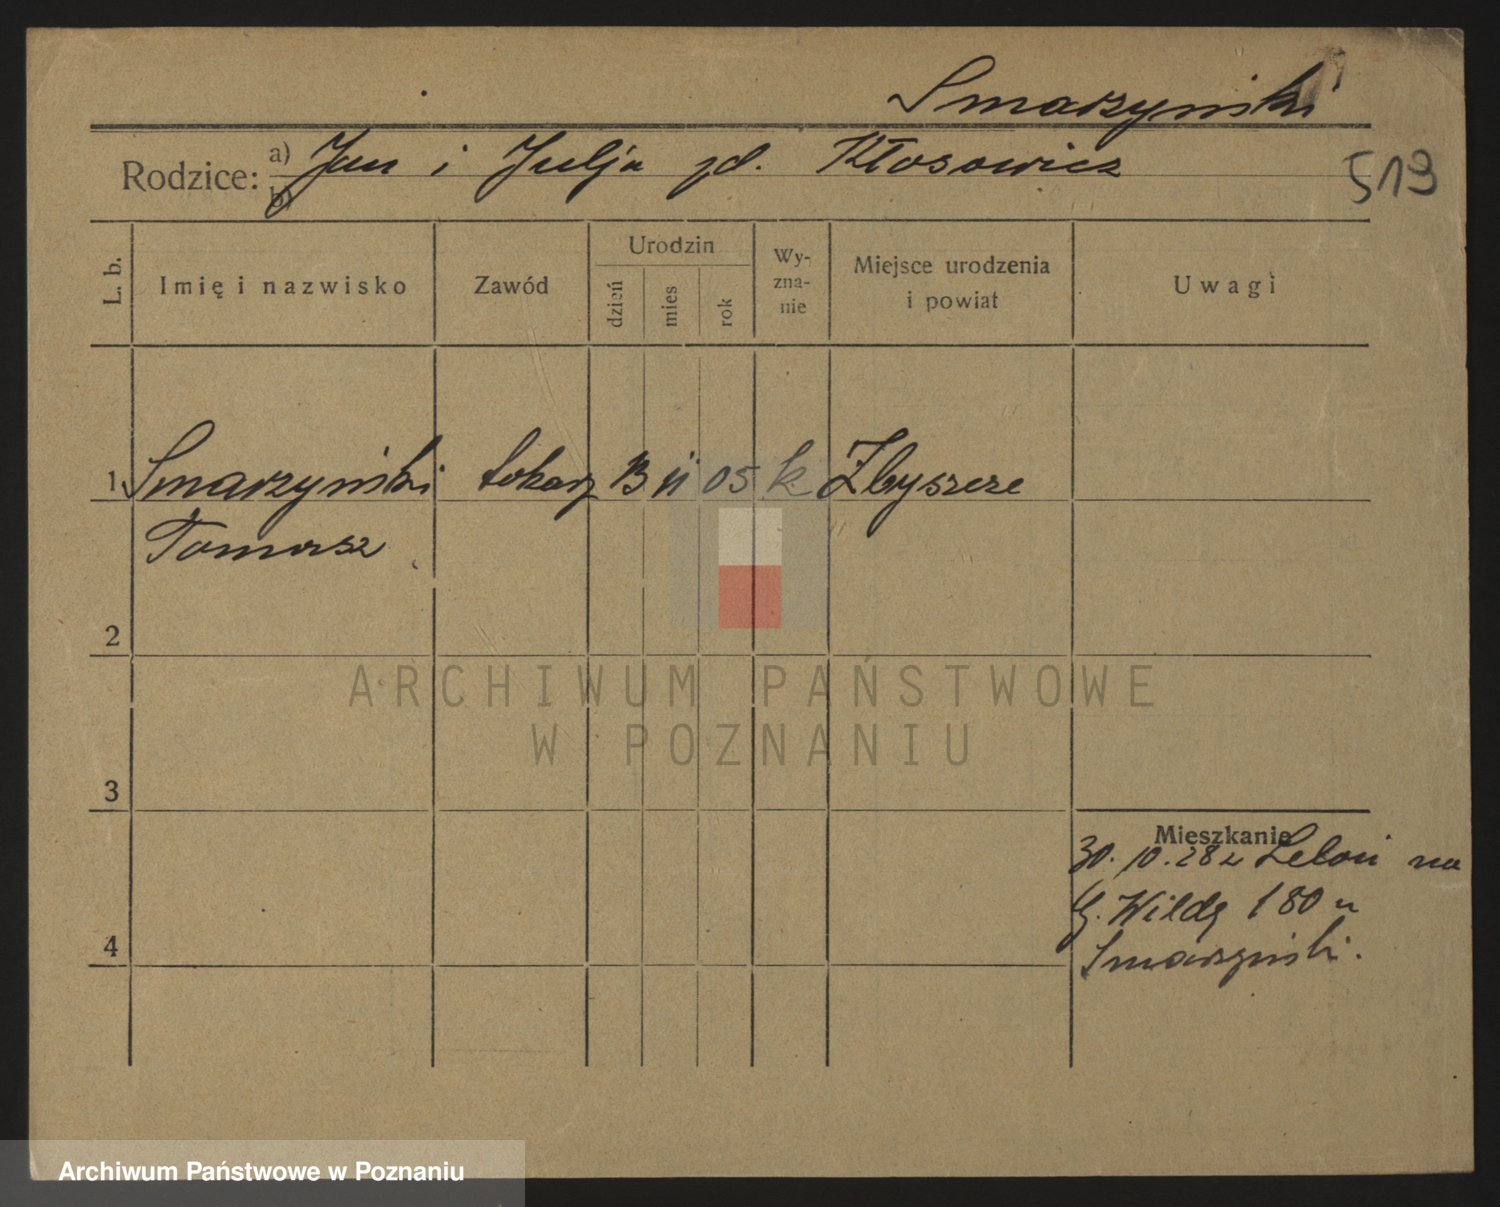 Smarzyński
Rodzice: a) Jan i Julja zd. Kłosowicz
b)
519
L. b.
Imię i nazwisko
Zawód
Urodzin
dzień
mies
rok
Wy-
zna-
nie
Miejsce urodzenia
i powiat
Uwagi
1 Smarzyński tokarz 13 11 05 k Zbyszcze
Tomasz
2
ARCHIWUM PAŃSTWOWE
W POZNANIU
3
Mieszkanie
30. 10. 28 z na
G. Wildę 180 u
Smarzyński.
4
Archiwum Państwowe w Poznaniu